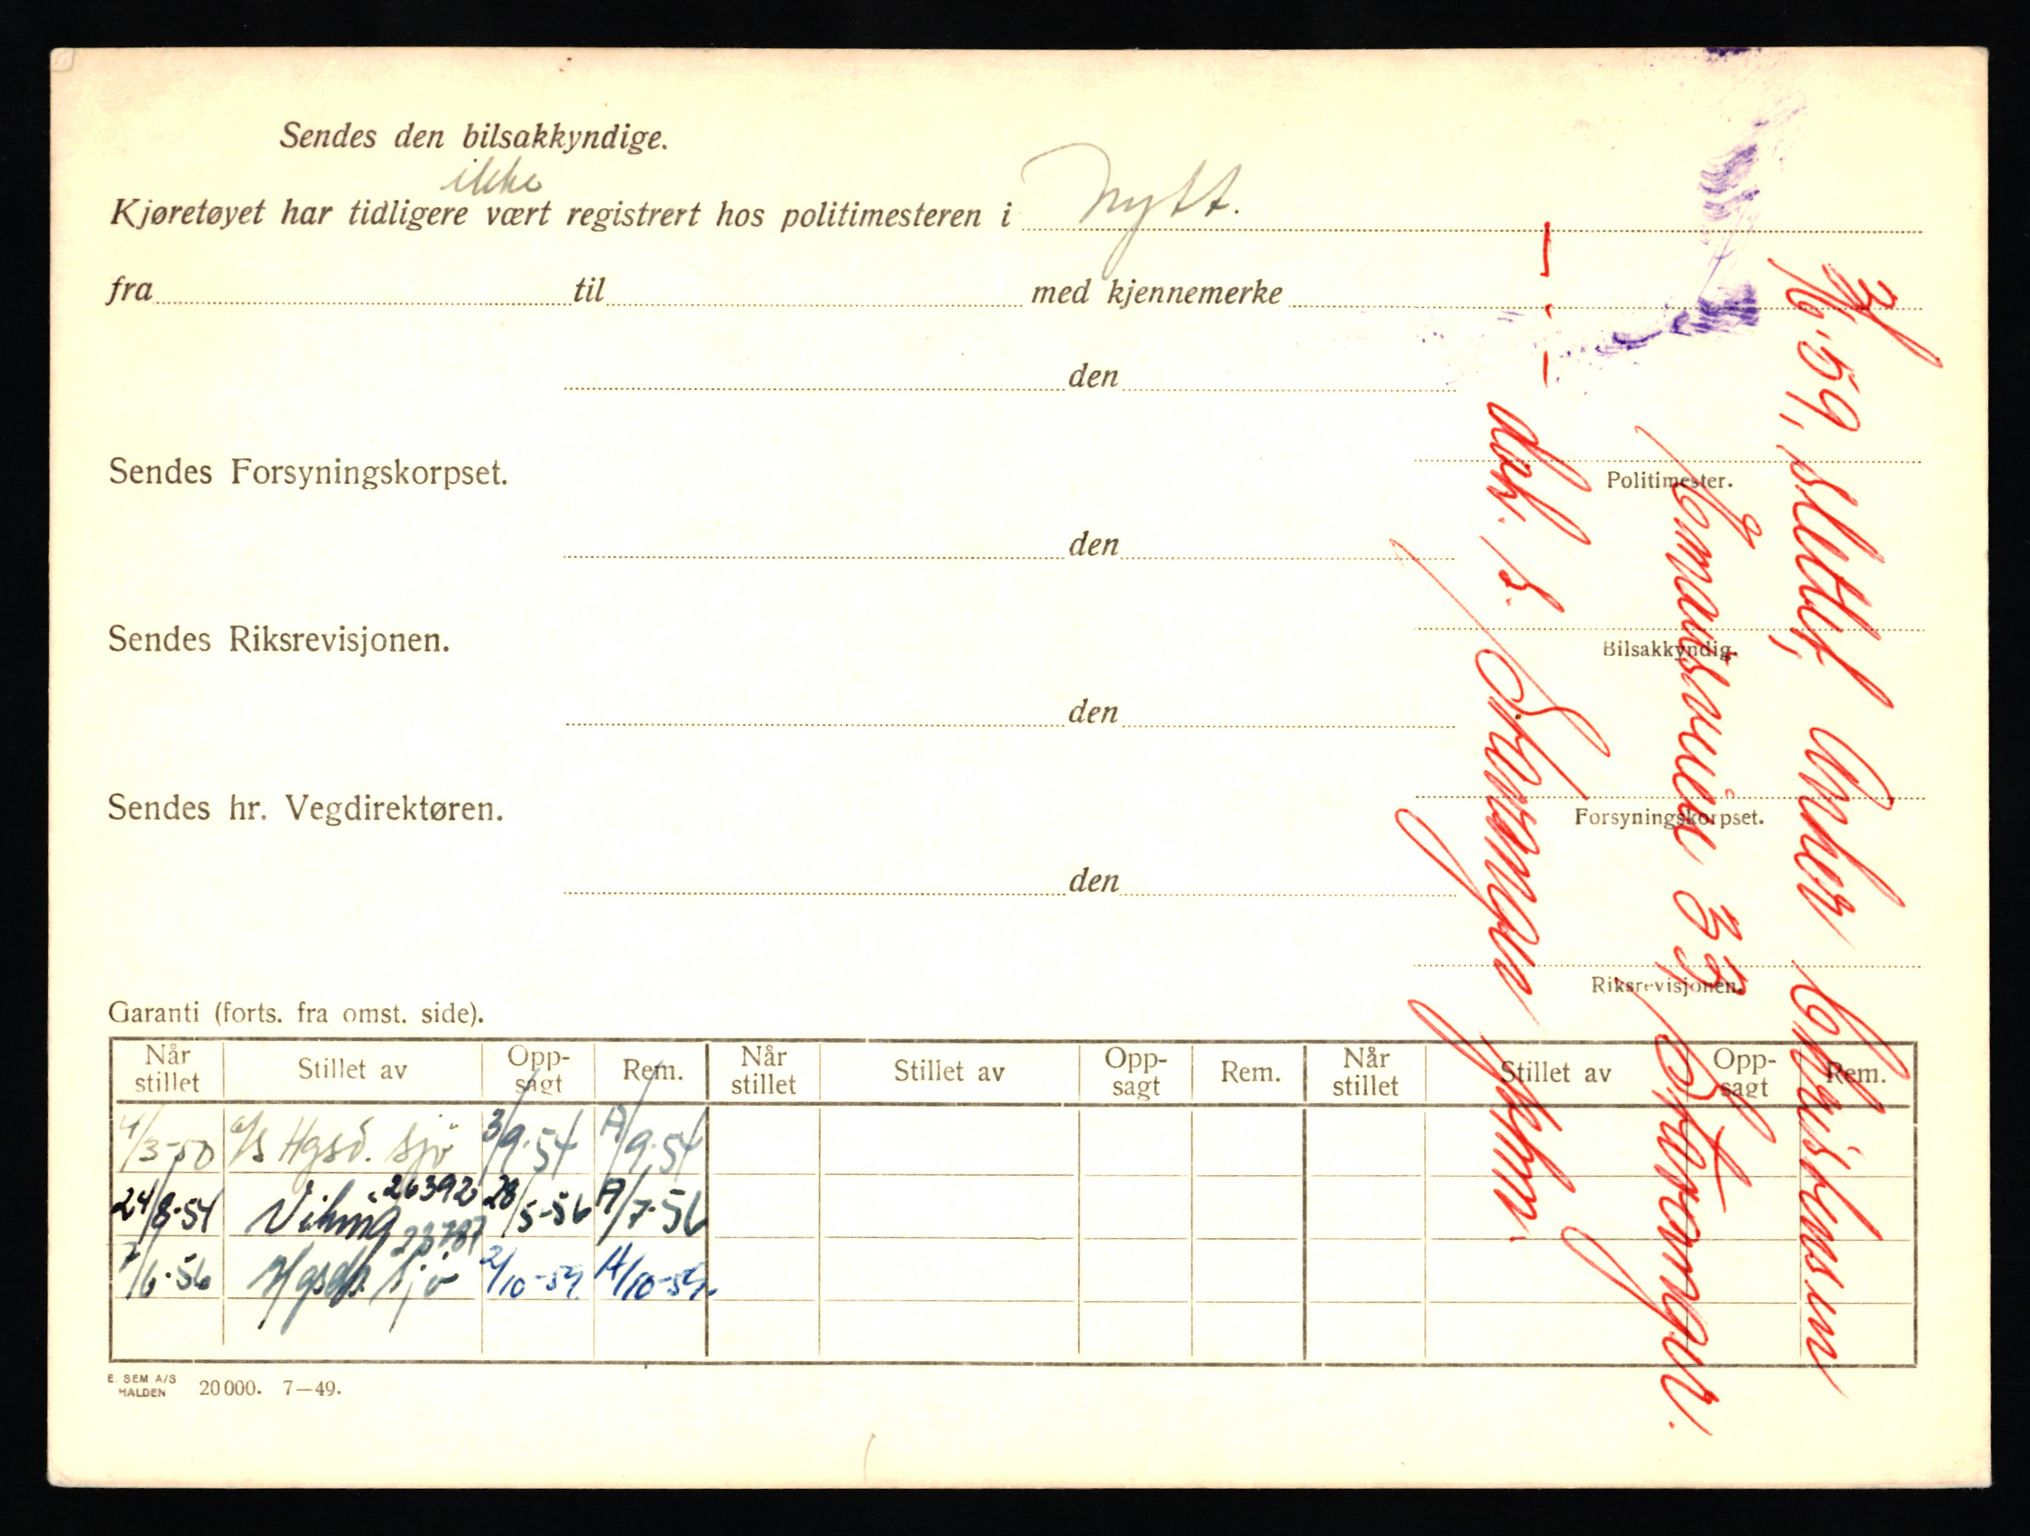 Sendes den bilsakkyndige.
ikke
Kjøretøyet har tidligere vært registrert hos politimesteren i Nytt.
fra til med kjennemerke
den
Politimester.
Sendes Forsyningskorpset.
den
Bilsakkyndig.
Sendes Riksrevisjonen.
den
Forsyningskorpset.
Sendes hr. Vegdirektøren.
den
Riksrevisjonen.
Garanti (forts. fra omst. side).
Når stillet Stillet av Opp-sagt Rem. Når stillet Stillet av Opp-sagt Rem. Når stillet Stillet av Opp-sagt Rem.
4/3-50 a/s Hgsd. Sjø 3/9-54 A/9-54
24/8-54 Viking 26392 28/5-56 A/7-56
23787
7/6-56 Hgsds. Sjø 2/10-59 A/10-59.
E. SEM A/S
HALDEN 20000. 7—49.
10.-59, slettet, Anker Christensen
33 Stavanger.
Stavanger